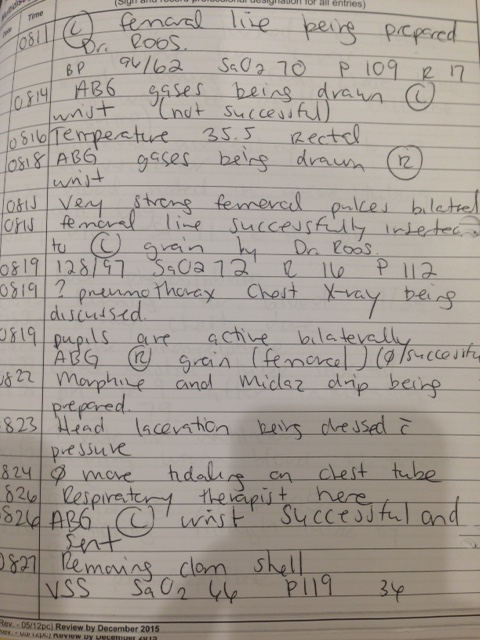 (Sign and record professional designation for all entries)
Time
0811 Ⓛ femoral line being prepared
Dr. Roos.
BP 94/62 SaO2 70 P 109 R 17
0814 ABG gases being drawn Ⓛ
wrist (not successful)
0816 Temperature 35.5 Rectal
0818 ABG gases being drawn Ⓡ
wrist
0815 Very strong femeral pulces bilateral
0815 femoral line successfully inserted
to Ⓛ grain by Dr. Roos.
0819 128/97 SaO2 72 R 16 P 112
0819 ? pneumothorax Chest X-ray being
discussed.
0819 pupils are active bilaterally
ABG Ⓡ grain (femoral) (Ø/successful
0822 Morphine and Midaz drip being
prepared.
0823 Head laceration being dressed c̄
pressure
0824 Ø more tidaling on chest tube
0826 Respiratory therapist here
0826 ABG Ⓛ wrist successful and
sent
0827 Removing clam shell
VSS SaO2 66 P119 34
Rev. - 05/12pc) Review by December 2015